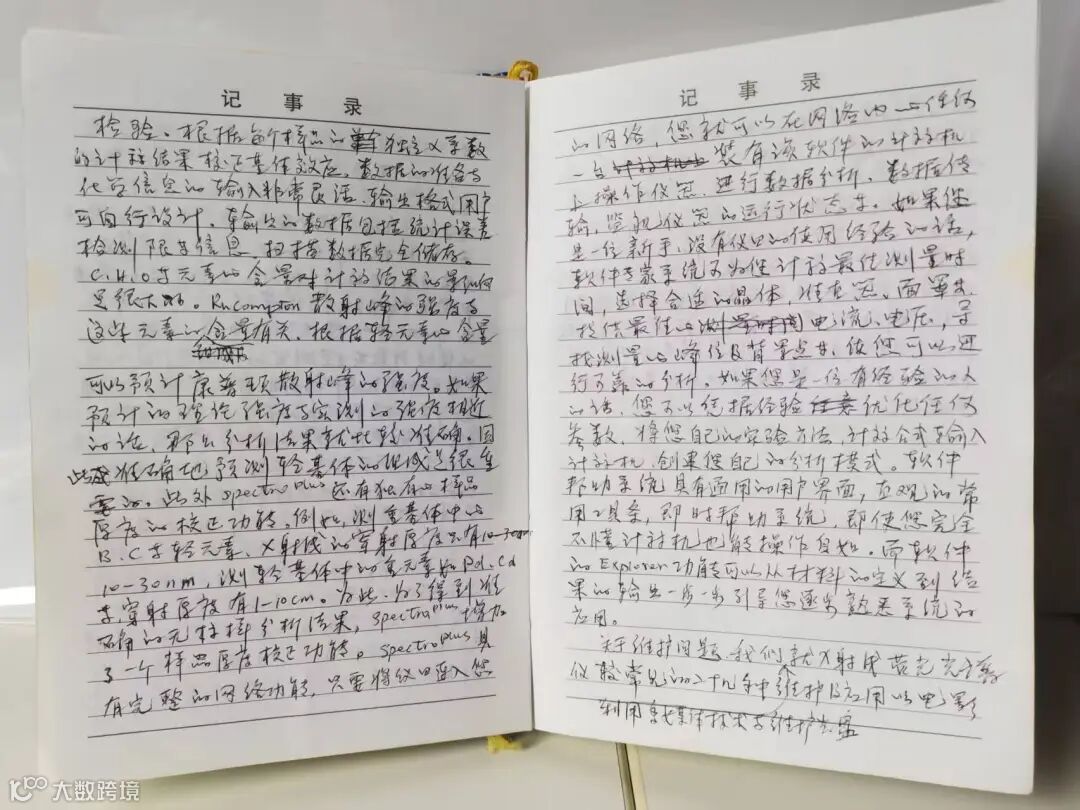 记事录
检验。根据每个样品的独立α系数
的计算结果校正基体效应，数据的准备与
化学信息的输入非常灵活、输出格式用户
可自行设计。输出的数据包括统计误差
检测限等信息。扫描数据完全储存。
C.H.O等元素的含量对计算结果的影响
是很大的。RhCompton散射峰的强度与
这些元素的含量有关、根据轻元素的含量
可以预计康普顿散射峰的强度。如果
预计的理论强度与实测的强度相近
的话、那么分析结果就比较准确。因
此准确地预测轻基体的组成是很重
要的。此外spectraplus还有独有的样品
厚度的校正功能。例如，测重基体中的
B.C等轻元素、X射线的穿射厚度只有
10-30nm，测轻基体中的重元素如Pd.Cd
等，穿射厚度有1-10cm。为此，为了得到准
确的无标样分析结果，spectraplus增加
了一个样品厚度校正功能。spectraplus具
有完整的网络功能，只要将仪器连入您
记事录
的网络，您就可以在网络内的任何
一台装有该软件的计算机
上操作仪器、进行数据分析、数据传
输，监视仪器的运行状态等。如果您
是一位新手、没有仪器的使用经验的话，
软件专家系统可为您计算最佳测量时
间，选择合适的晶体，准直器、面罩等
提供最佳的电流、电压，寻
找测量的峰位及背景点等，使您可以进
行可靠的分析。如果您是一位有经验的人
的话、您可以凭据经验优化任何
参数，将您自己的实验方法、计算公式输入
计算机、创建您自己的分析模式。软件
帮助系统具有通用的用户界面，直观的常
用工具条，即时帮助系统，即使您完全
不懂计算机也能操作自如。而软件
的Explorer功能可以从材料的定义到结
果的输出一步一步引导您逐步熟悉系统的
应用。
关于维护问题、我们就X射线荧光光谱
仪较常见的二十几种维护及应用以电影
利用多媒体技术与维护
大数跨境